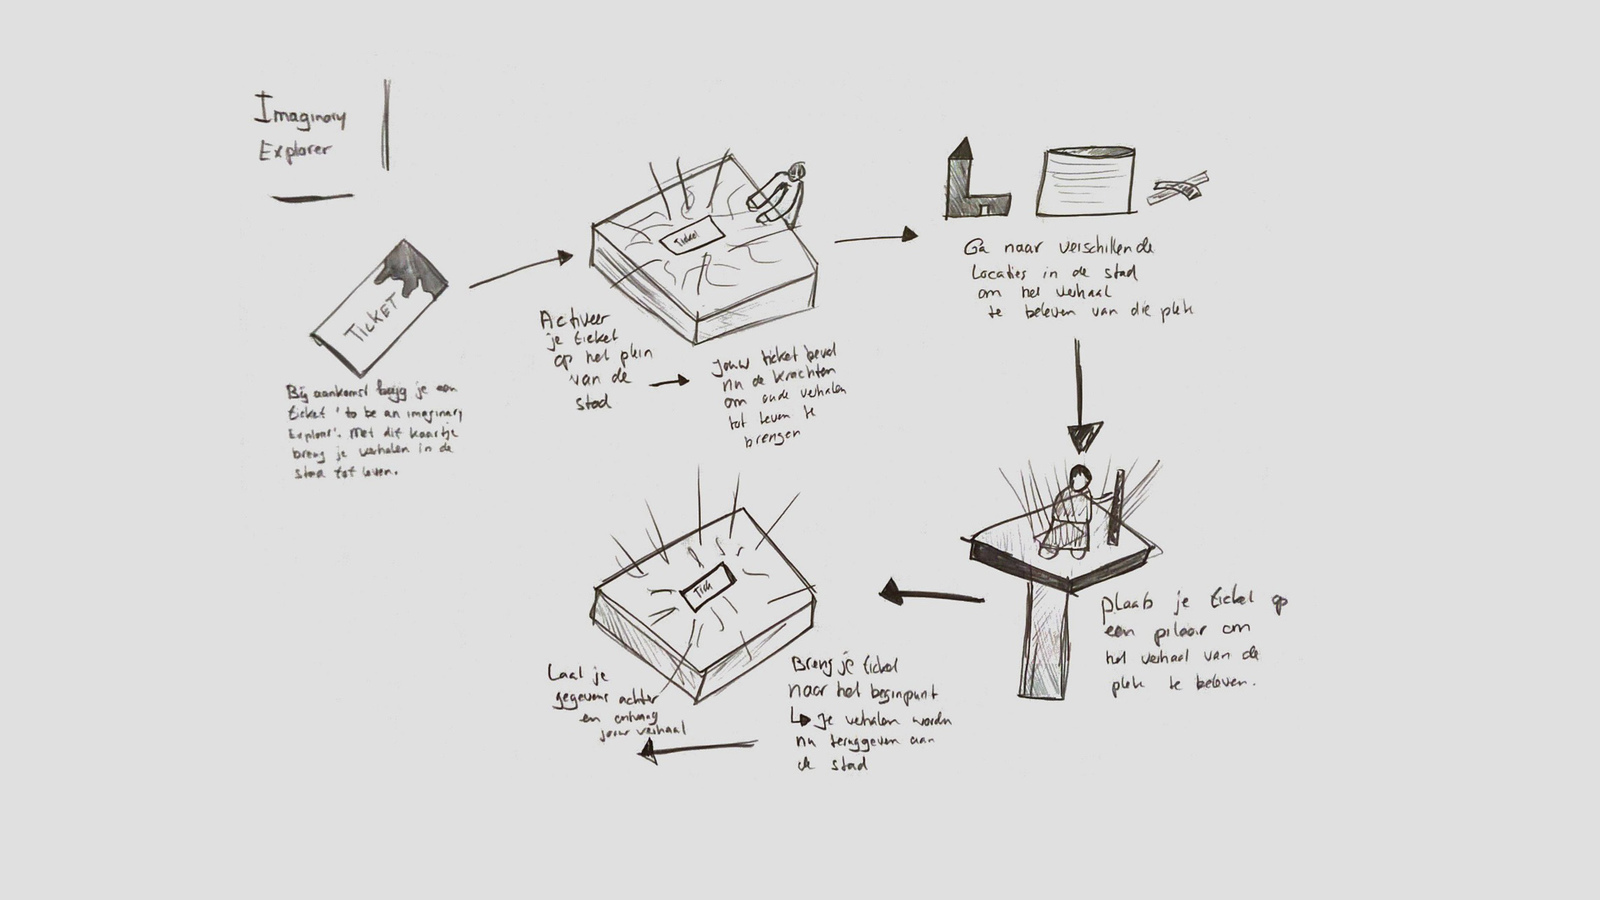 Imaginary
Explorer
TICKET
Bij aankomst krijg je een
ticket 'to be an imaginary
Explorer'. Met dit kaartje
breng je verhalen in de
stad tot leven.
Ticket
Activeer
je ticket
op het plein
van de
stad
Jouw ticket bevat
nu de krachten
om oude verhalen
tot leven te
brengen
Ga naar verschillende
locaties in de stad
om het verhaal
te beleven van die plek
plaats je ticket op
een pilaar om
het verhaal van de
plek te beleven.
Breng je ticket
naar het beginpunt
Je verhalen worden
nu teruggeven aan
de stad
Laat je
gegevens achter
en ontvang
jouw verhaal